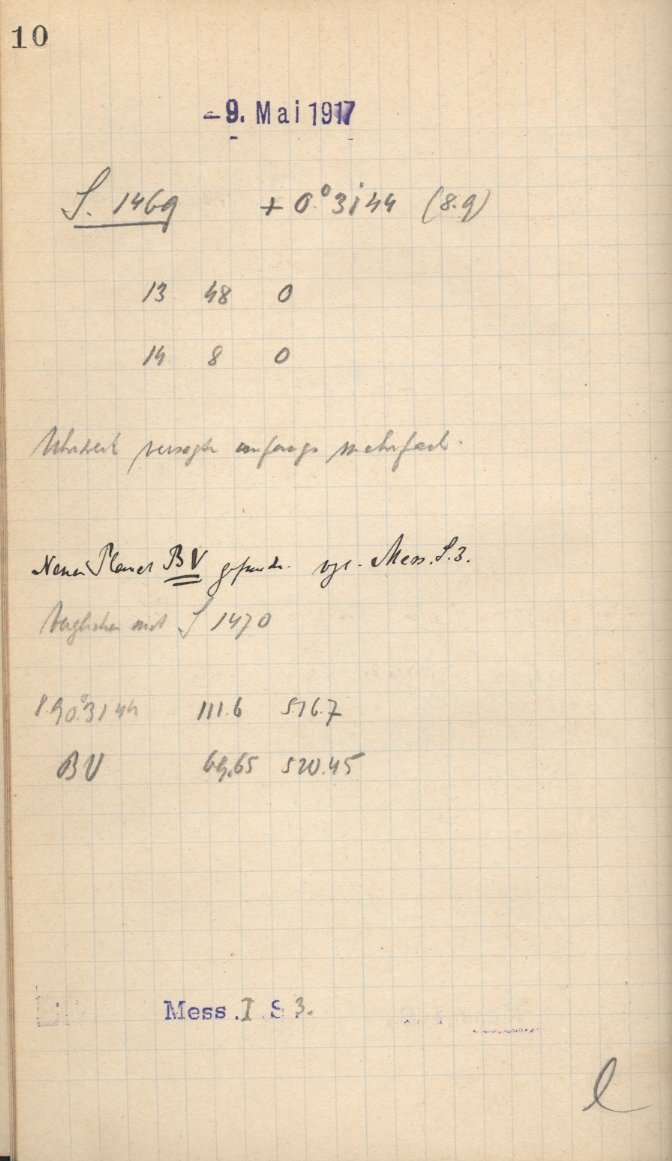 10
-9. Mai 1917
S. 1469 + 0° 3144 (8.9)
13 48 0
14 8 0
Uhrwerk versagte anfangs mehrfach.
Neuer Planet BV gefunden. vgl. Mess. S. 3.
Verglichen mit S 1470
8.9 0°3144 111.6 516.7
BV 69.65 520.45
Mess. I S 3.